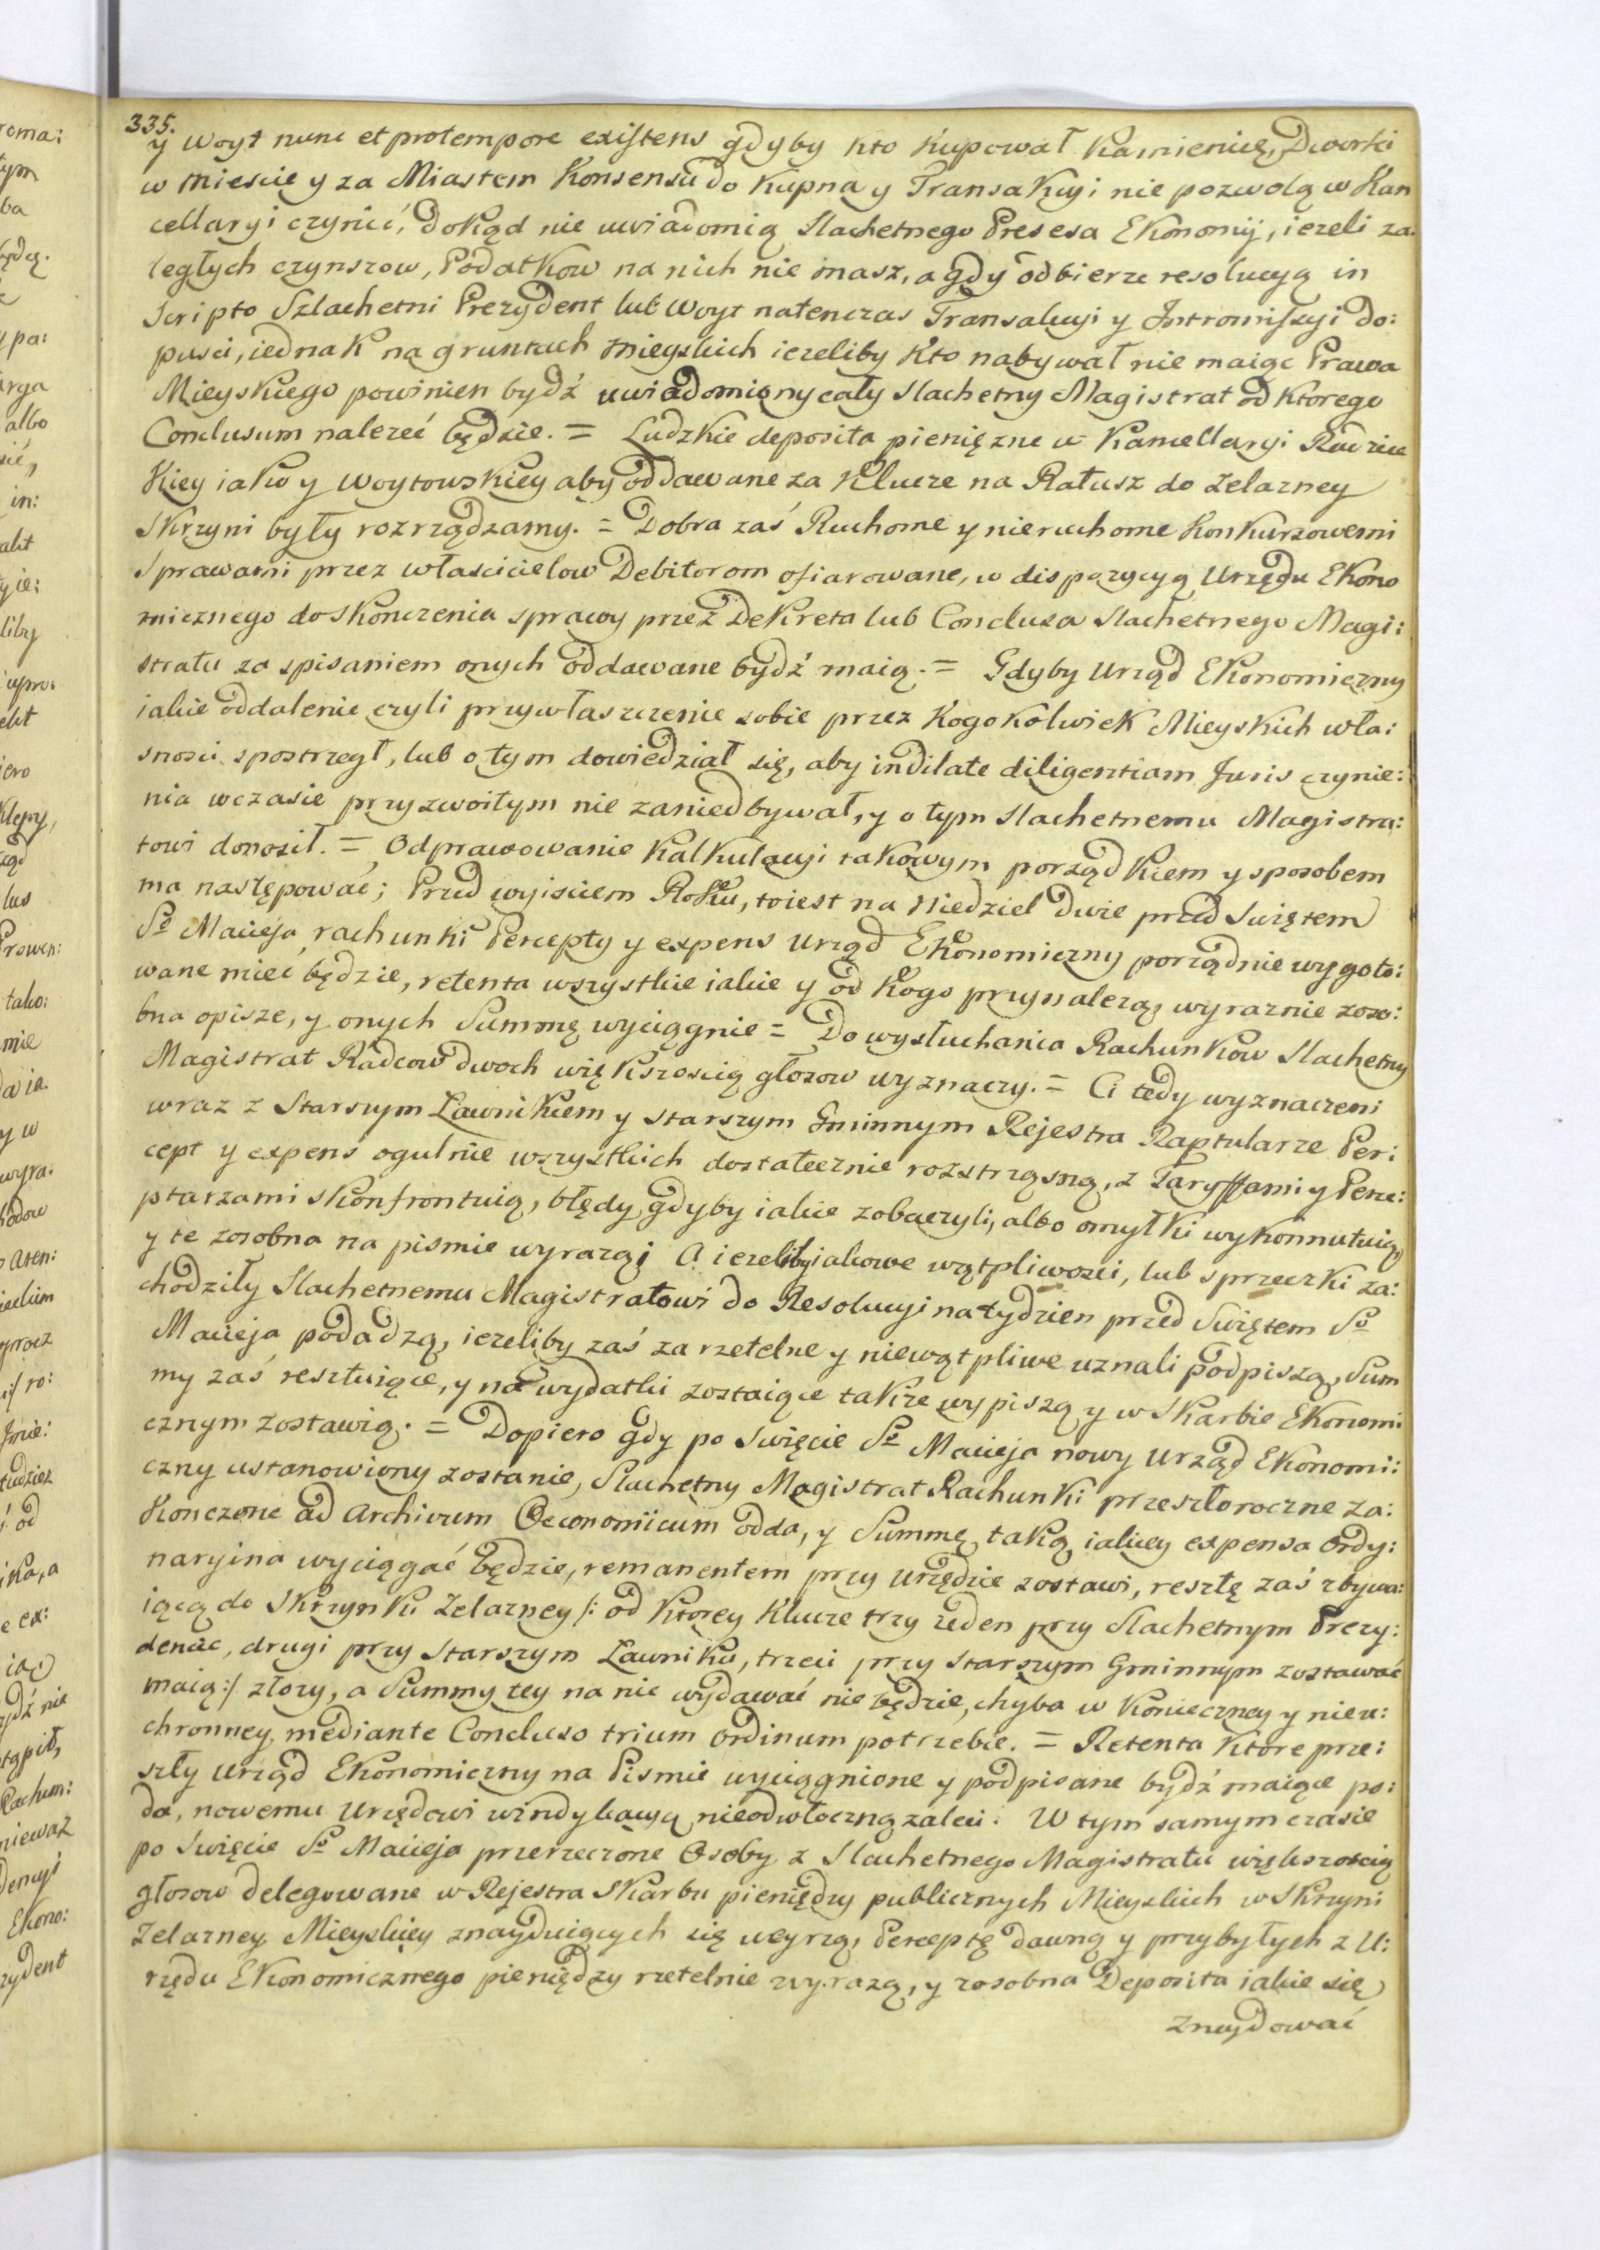 335.
y Woyt nunc et protempore existens gdyby kto kupował Kamienicę, Dworki
w Miescie y za Miastem Konsensu do Kupna y Transakcyi nie pozwolą w Kan
cellaryi czynić, dokąd nie uwiadomią Slachetnego Presesa Ekonomij, iezeli za
ległych czynszow, Podatkow na nich nie masz, a gdy odbierze resolucyą in
Scripto Szlachetni Prezydent lub Woyt natenczas Transakcyi y Intromissyi do:
pusci, iednak na gruntach Mieyskich iezeliby kto nabywał nie maiąc Prawa
Mieyskiego powinien bydź uwiadomiony cały Slachetny Magistrat od ktorego
Conclusum nalezeć będzie. = Ludzkie deposita pienięzne w Kancellaryi Radziec
kiey iako y Woytowskiey aby oddawane za Klucze na Ratusz do Zelazney
Skrzyni były rozrządzamy. = Dobra zaś Ruchome y nieruchome Konkurzowemi
Sprawami przez własciciełow Debitorom ofiarowane, w dispozycyą Urzędu Ekono
micznego do skonczenia sprawy przez Dekreta lub Conclusa Slachetnego Magi:
stratu za spisaniem onych oddawane bydź maią. = Gdyby Urząd Ekonomiczny
iakie oddalenie czyli przywłaszczenie sobie przez kogokolwiek Mieyskich wła:
snosci spostrzegł, lub o tym dowiedział się, aby indilate diligentiam Juris czynie:
nia wczasie przyzwoitym nie zaniedbywał, y o tym Slachetnemu Magistra:
towi donosił. = Odprawowanie Kalkulacyi takowym porządkiem y sposobem
ma następować; Przed wyisciem Roku, toiest na Niedziel dwie przed Swiętem
So Macieja rachunki Percepty y expens Urząd Ekonomiczny porządnie wygoto:
wane mieć będzie, retenta wszystkie iakie y od kogo przynalezą, wyraznie zoso:
bna opisze, y onych Summę wyciągnie = Do wysłuchania Rachunkow Slachetny
Magistrat Radcow dwoch większoscią głosow wyznaczy. = Ci tedy wyznaczeni
wraz z Starszym Ławnikiem y starszym Gminnym Rejestra Raptularze Per:
cept y expens ogulnie wszystkich dostatecznie rozstrząsną, z Taryffami y Perce:
ptarzami skonfrontuią, błędy gdyby iakie zobaczyli, albo omyłki wykonnutuią,
y te zosobna na pismie wyrazą; A iezeliby iakowe wątpliwosci, lub sprzeczki za:
chodziły Slachetnemu Magistratowi do Resolucyi na tydzien przed Swiętem So
Macieja podadzą, iezeliby zaś za rzetelne y niewątpliwe uznali podpiszą, Sum
my zaś resztuiące, y na wydatki zostaiące takze wypiszą y w Skarbie Ekonomi
cznym zostawią. = Dopiero gdy po Swięcie So Macieja nowy Urząd Ekonomi:
czny ustanowiony zostanie, Slachetny Magistrat Rachunki przeszłoroczne za:
konczone ad Archivum Oeconomicum odda, y Summę taką iakiey expensa Ordy:
naryina wyciągać będzie, remanentem przy Urzędzie zostawi, resztę zaś zbywa:
iącą do Skrzynki Zelazney /: od ktorey klucze trzy ieden przy Slachetnym Prezy:
dencie, drugi przy Starszym Ławniku, trzeci przy Starszym Gminnym zostawać
maią :/ złozy, a Summy tey na nic wydawać nie będzie, chyba w konieczney y nieu:
chronney mediante Concluso trium Ordinum potrzebie. = Retenta ktore prze:
szły Urząd Ekonomiczny na Pismie wyciągnione y podpisane bydź maiące po:
da, nowemu Urzędowi windykacyą nieodwłoczną zaleci. W tym samym czasie
po Swięcie So Macieja przerzeczone Osoby z Slachetnego Magistratu większoscią
głosow delegowane w Rejestra Skarbu pieniędzy publicznych Mieyskich w Skrzyni
Zelazney Mieyskiey znayduiących się weyrzą, Perceptę dawną y przybyłych z U:
rzędu Ekonomicznego pieniędzy rzetelnie wyrazą, y zosobna Deposita iakie się
znaydować